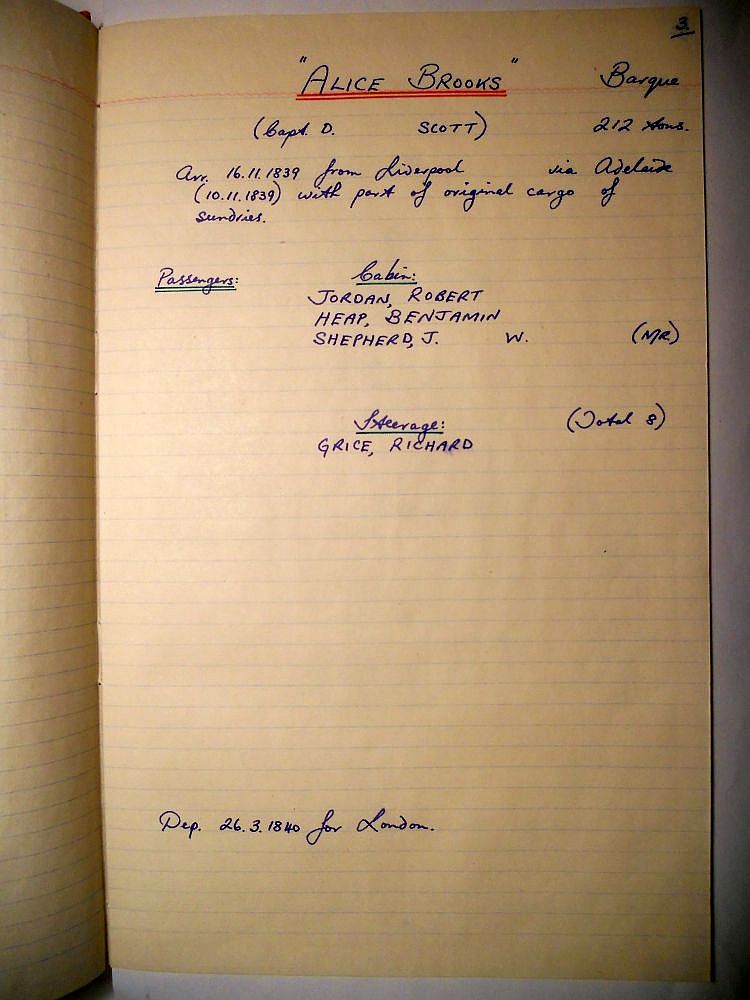 3.
"ALICE BROOKS" Barque
(Capt. D. SCOTT) 212 tons.
Arr. 16.11.1839 from Liverpool via Adelaide
(10.11.1839) with part of original cargo of
sundries.
Passengers: Cabin:
JORDAN, ROBERT
HEAP, BENJAMIN
SHEPHERD, J. W. (MR)
Steerage: (Total 8)
GRICE, RICHARD
Dep. 26.3.1840 for London.